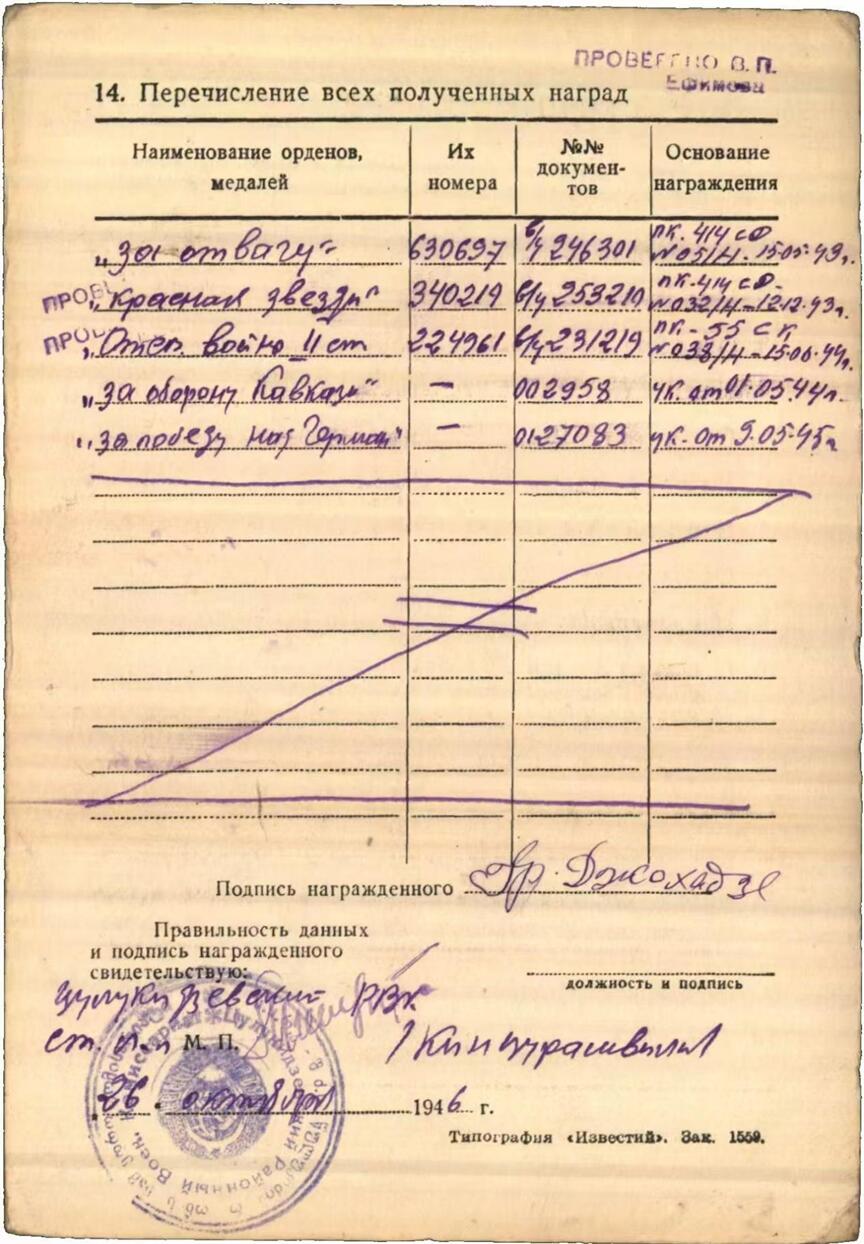 ПРОВЕРЕНО В.П.
Ефимова
14. Перечисление всех полученных наград
Наименование орденов, медалей | Их номера | №№ документов | Основание награждения
„За отвагу“ 630697 б/у 246301 пк. 414 сд №051/н - 15.05.43г.
ПРОВ
„Красная звезда“ 340219 в/у 253210 пк. 414 сд - №032/н - 12.12.43г.
ПРО
„Отеч. войны II ст 224961 в/у 231219 пк - 55 ск №038/н - 15.06.44г.
„за оборону Кавказа“ — 002958 ук. от 01.05.44г.
„за победу над Герман“ — 0127083 ук. от 9.05.45г
Подпись награжденного Джохадзе
Правильность данных
и подпись награжденного
свидетельствую:
должность и подпись
Цулукидзевский РВК
ст. М. П.
26 октября 1946 г.
Типография «Известий». Зак. 1559.